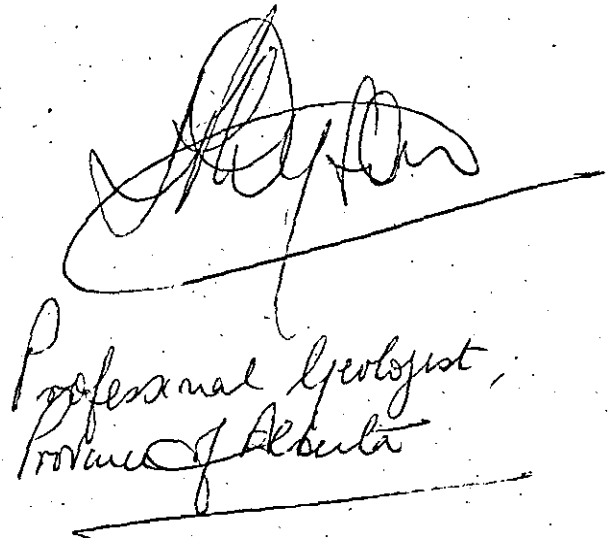 Professional Geologist,
Province of Alberta